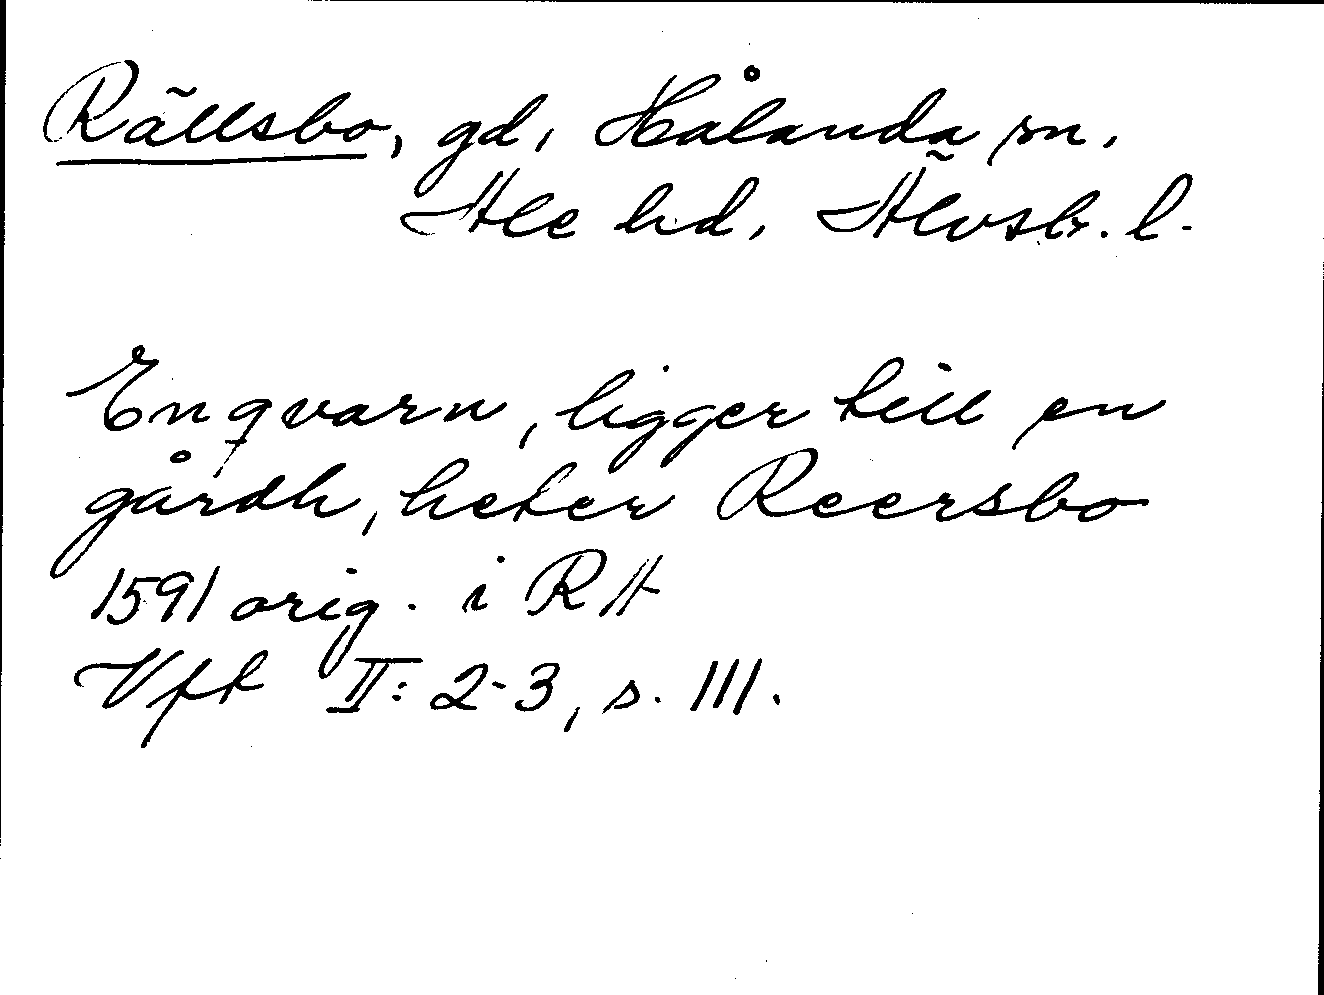 Rällsbo, gd, Hålanda sn.
Ale hd, Älvsb. l.
En qvarn, ligger till en
gårdh, heter Reersbo
1591 orig. i RA
Vft II: 2-3, s. 111.